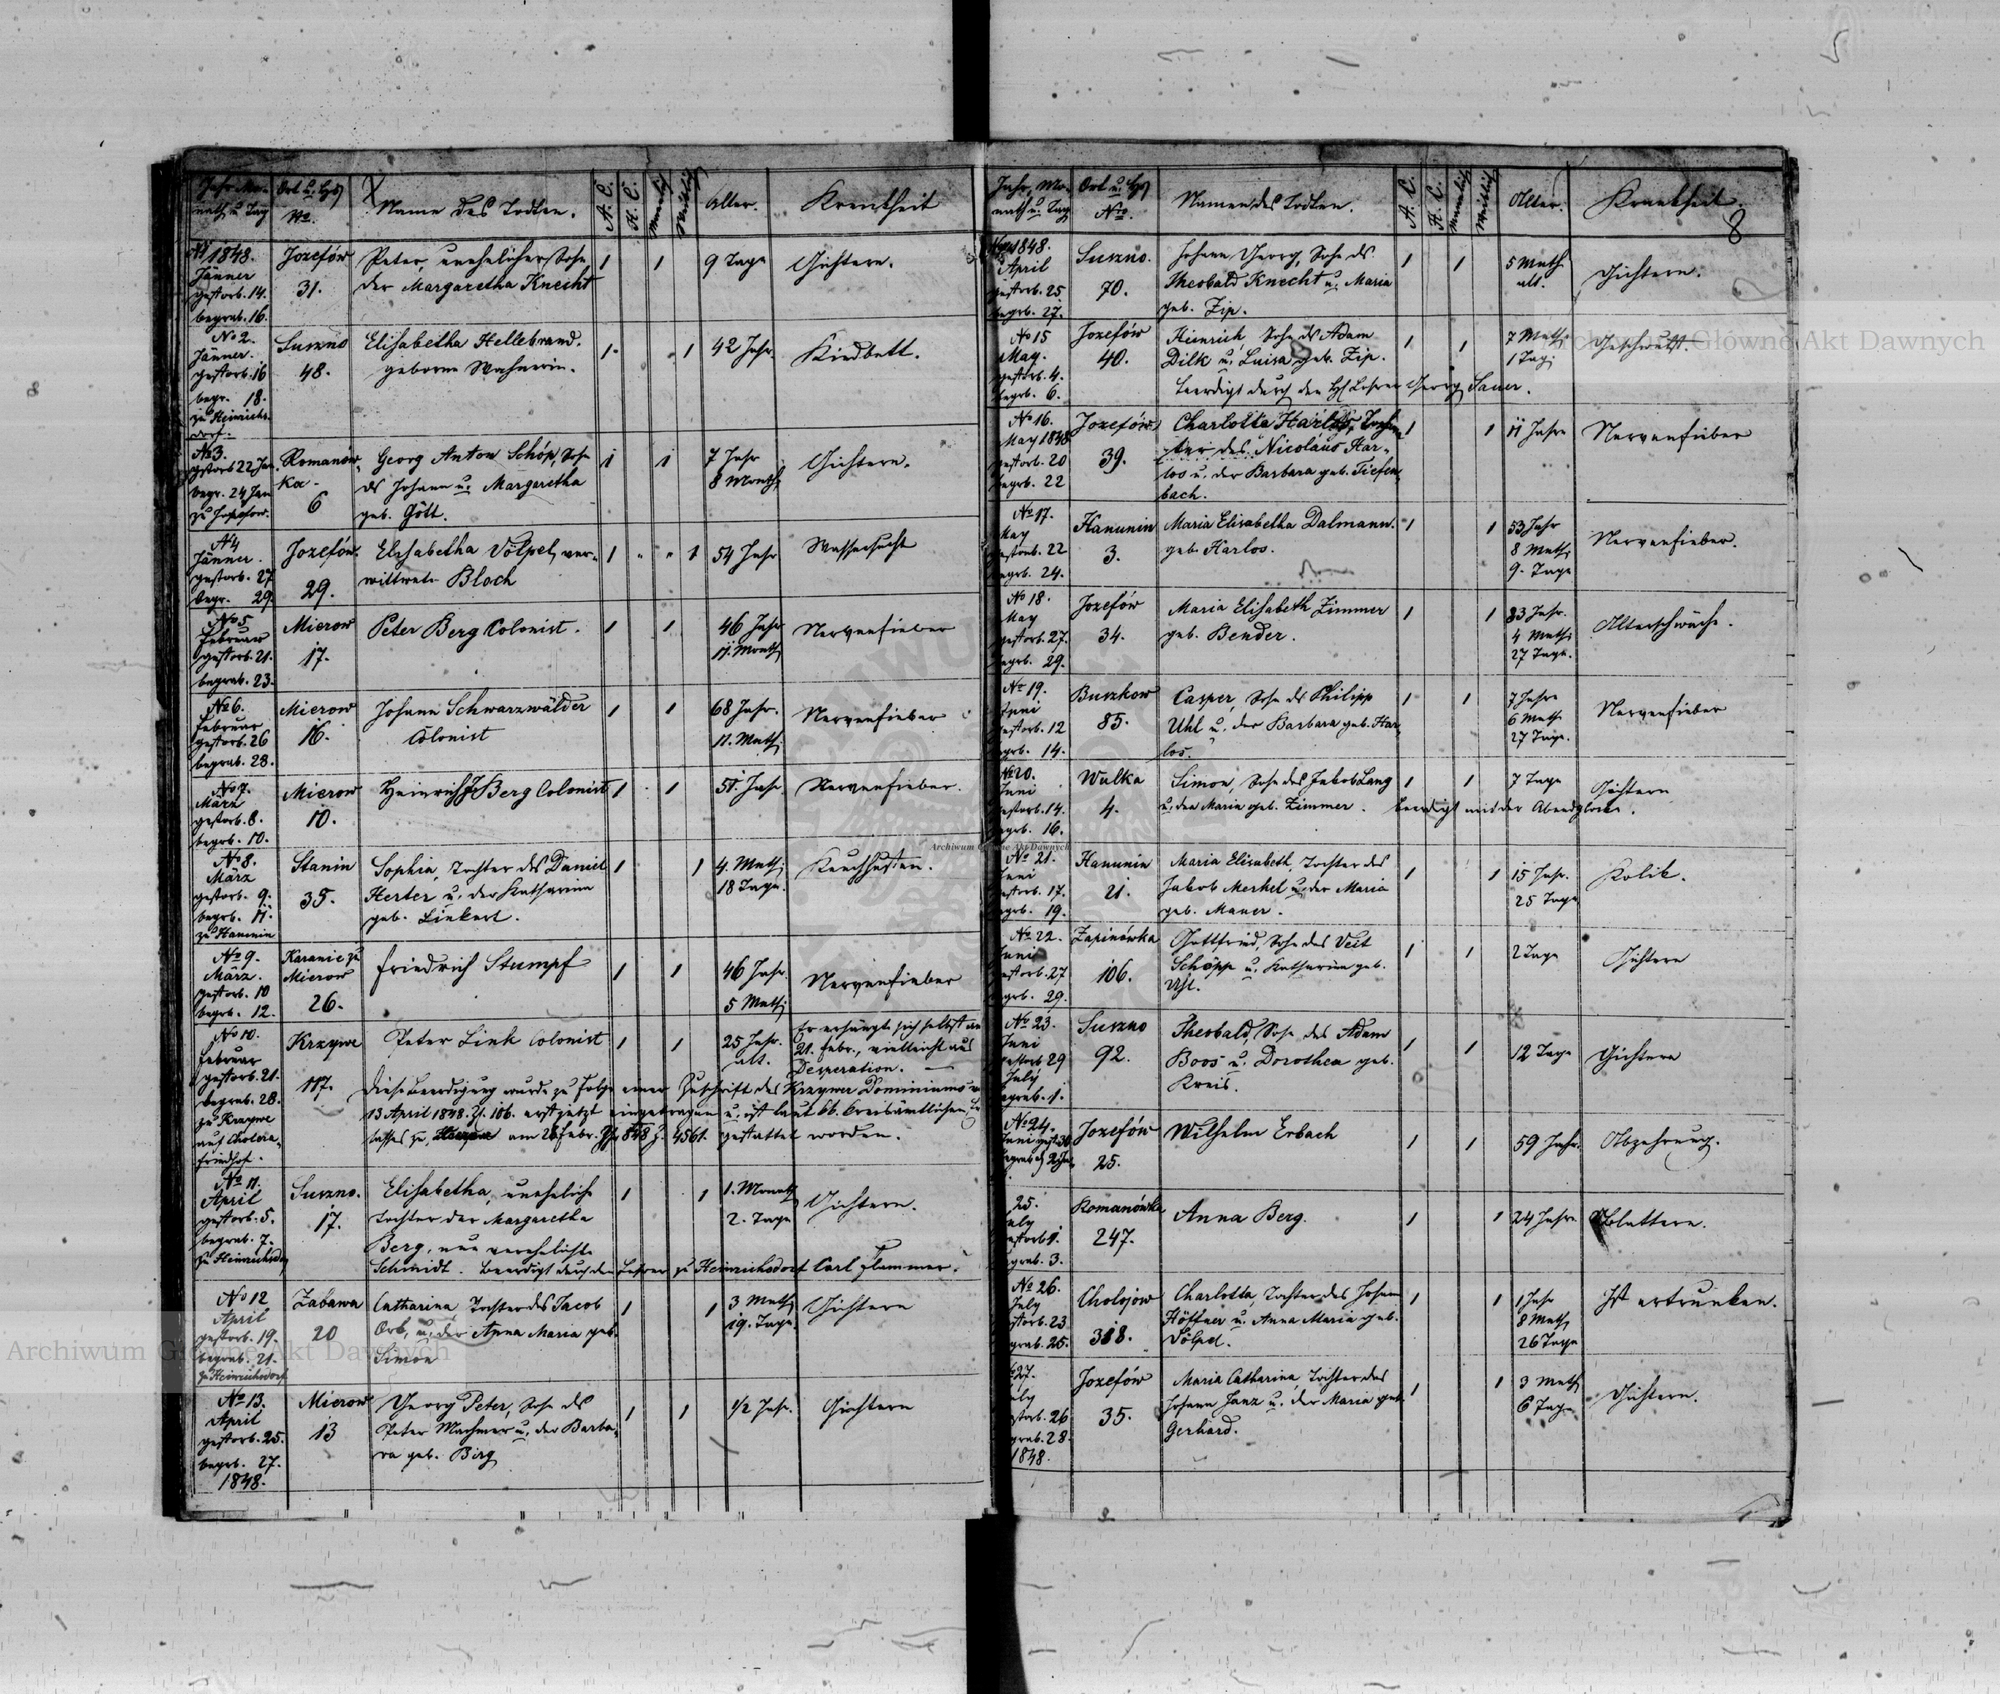 Jahr Mo-
nath u. Tag
Ort u. Hs
No.
Name des Todten.
A. C.
H. C.
Männlich
Weiblich
Alter.
Krankheit
No 1 1848.
Jänner
gestorb. 14.
begrab. 16.
Jozefów
31.
Peter, unehelicher Sohn
der Margaretha Knecht
1
1
9 Tage
Gichtern.
No 2.
Jänner.
gestorb. 16
begr. 18.
zu Heinrichs-
dorf.
Suszno
48.
Elisabetha Hellebrand.
geborne Wahnerin.
1.
1
42 Jahr.
Kindbett.
No 3.
gestorb 22 Jan.
begr. 24 Jan
zu Josefow.
Romanów-
ka.
6
Georg Anton Schöp, Sohn
des Johann u. Margaretha
geb. Gött.
1
1
7 Jahr
8 Month
Gichtern.
No 4
Jänner.
gestorb. 27
begr. 29.
Jozefów.
29.
Elisabetha Völpel, ver-
wittwete Bloch
1
"
"
1
54 Jahr
Wassersucht
No 5
Februar
gestorb. 21.
begrab. 23.
Mierow
17.
Peter Berg Colonist.
1
1
46 Jahr
11. Month
Nervenfieber
No 6.
Februar
gestorb. 26
begrab. 28.
Mierow
16.
Johann Schwarzwälder
Colonist
1
1
68 Jahr.
11. Month
Nervenfieber
No 7.
März
gestorb. 8.
begrb. 10.
Mierow
10.
Heinrich Berg Colonist
1
1
51. Jahr.
Nervenfieber.
No 8.
März
gestorb. 9.
begrb. 11.
zu Hanunin
Stanin
35.
Sophia, Tochter des Daniel
Herter u. der Katharina
geb. Linkert.
1
1
4. Mnth
18 Tage.
Keuchhusten.
No 9.
März.
gestorb. 10
begrb. 12.
Karanie zu
Mierow
26.
Friedrich Stumpf
1
1
46 Jahr.
5 Mnth
Nervenfieber
No 10.
Februar
gestorb. 21.
begrab. 28.
zu Krzywe
auf Cholera-
friedhof.
Krzywe
117.
Peter Link Colonist
1
1
25 Jahr.
alt.
Er erhängte sich selbst am
21. Febr., vielleicht aus
Desperation.
Diese Beerdigung wurde zu Folge einer Zuschrift des Krzywer Dominiums v.
13 April 1848. Z. 106. erst jetzt eingetragen u. ist laut kk. kreisämtlichen Er-
lasses am 26 Febr. 1848 Z. 4561. gestattet worden.
No 11.
April
gestorb. 5.
begrab. 7.
zu Heinrichsdorf
Suszno.
17.
Elisabetha, uneheliche
Tochter der Margaretha
Berg, nun verehelichte
Schmidt. Beerdigt durch den Lehrer zu Heinrichsdorf Carl Flammer.
1
1
1. Monath
2. Tage
Gichtern.
No 12
April
gestorb. 19.
begrab. 21.
zu Heinrichsdorf
Zabawa
20
Catharina Tochter des Jacob
Orb, u. der Anna Maria geb.
Simon
1
1
3 Mnth
19. Tage.
Gichtern
No 13.
April
gestorb. 25.
begrb. 27.
1848.
Mierow
13
Georg Peter, Sohn des
Peter Machmer u. der Barba-
ra geb. Birg
1
1
1/2 Jahr.
Gichtern
Jahr, Mo-
nath u. Tag
Ort u. Hs
Nro.
Namen des Todten.
A. C.
H. C.
Männlich
Weiblich
Alter.
Krankheit.
8
1848.
April
gestorb. 25
begrb. 27.
Suszno.
70.
Johann Georg, Sohn des
Theobald Knecht u. Maria
geb. Zip.
1
1
5 Mnth
alt.
Gichtern.
No 15
May.
gestorb. 4.
begrb. 6.
Jozefów
40.
Heinrich, Sohn des Adam
Dilk u. Luisa geb. Zip.
beerdigt durch den Hl Lehrer Georg Sauer.
1
1
7 Mnth
1 Tag
Geschwulst.
No 16.
May 1848
gestorb. 20
begrb. 22
Jozefów
39.
Charlotta Harlos, Toch-
ter des Nicolaus Har-
los u. der Barbara geb. Tiefen-
bach.
1
1
11 Jahre
Nervenfieber
No 17.
May
gestorb. 22
begrb. 24.
Hanunin
3.
Maria Elisabetha Dalmann.
geb. Harlos.
1
1
53 Jahr
8 Mnth
9. Tage
Nervenfieber.
No 18.
May
gestorb. 27.
begrb. 29.
Jozefów
34.
Maria Elisabeth Zimmer
geb. Bender.
1
1
83 Jahr.
4 Mnth
27 Tage.
Altersschwäche.
No 19.
Juni
gestorb. 12
begrb. 14.
Buszkow
85.
Casper, Sohn des Philipp
Uhl u. der Barbara geb. Har-
los.
1
1
7 Jahr
6 Mnth
27 Tage.
Nervenfieber
No 20.
Juni
gestorb. 14.
begrb. 16.
Wulka
4.
Simon, Sohn des Jakob Lang
u. der Maria geb. Zimmer. beerdigt mit der Abendglocke.
1
1
7 Tage
Gichtern
No 21.
Juni
gestorb. 17.
begrb. 19.
Hanunin
21.
Maria Elisabeth, Tochter des
Jakob Merkel u. der Maria
geb. Maner.
1
1
15 Jahr.
25 Tage
Kolik.
No 22.
Juni
gestorb. 27
begrb. 29.
Zapinówka
106.
Gottfried, Sohn des Veit
Schöpp u. Katharina geb.
Uhl.
1
1
2 Tage
Gichtern
No 23.
Juni
gestorb 29
July
begrab. 1.
Suszno
92.
Theobald, Sohn des Adam
Boos u. Dorothea geb.
Kreis.
1
1
12 Tage
Gichtern
No 24.
Juni gest. 30
Jozefów
25.
Wilhelm Erbach
1
1
59 Jahr.
Abzehrung.
25.
July
gestorb 1.
begrab. 3.
Romanówka
247.
Anna Berg.
1
1
24 Jahre
Blattern.
No 26.
July
gestorb. 23
begrab. 25.
Cholojow
318.
Charlotta, Tochter des Johann
Höffner u. Anna Maria geb.
Völpel.
1
1
1 Jahr
8 Mnth
26 Tage
Ist ertrunken.
No 27.
July
gestorb. 26
begrab. 28.
1848.
Jozefów
35.
Maria Catharina, Tochter des
Johann Janz u. der Maria geb.
Gerhard.
1
1
3 Mnth
6 Tage
Gichtern.
Archiwum Główne Akt Dawnych
Archiwum Główne Akt Dawnych
Archiwum Główne Akt Dawnych